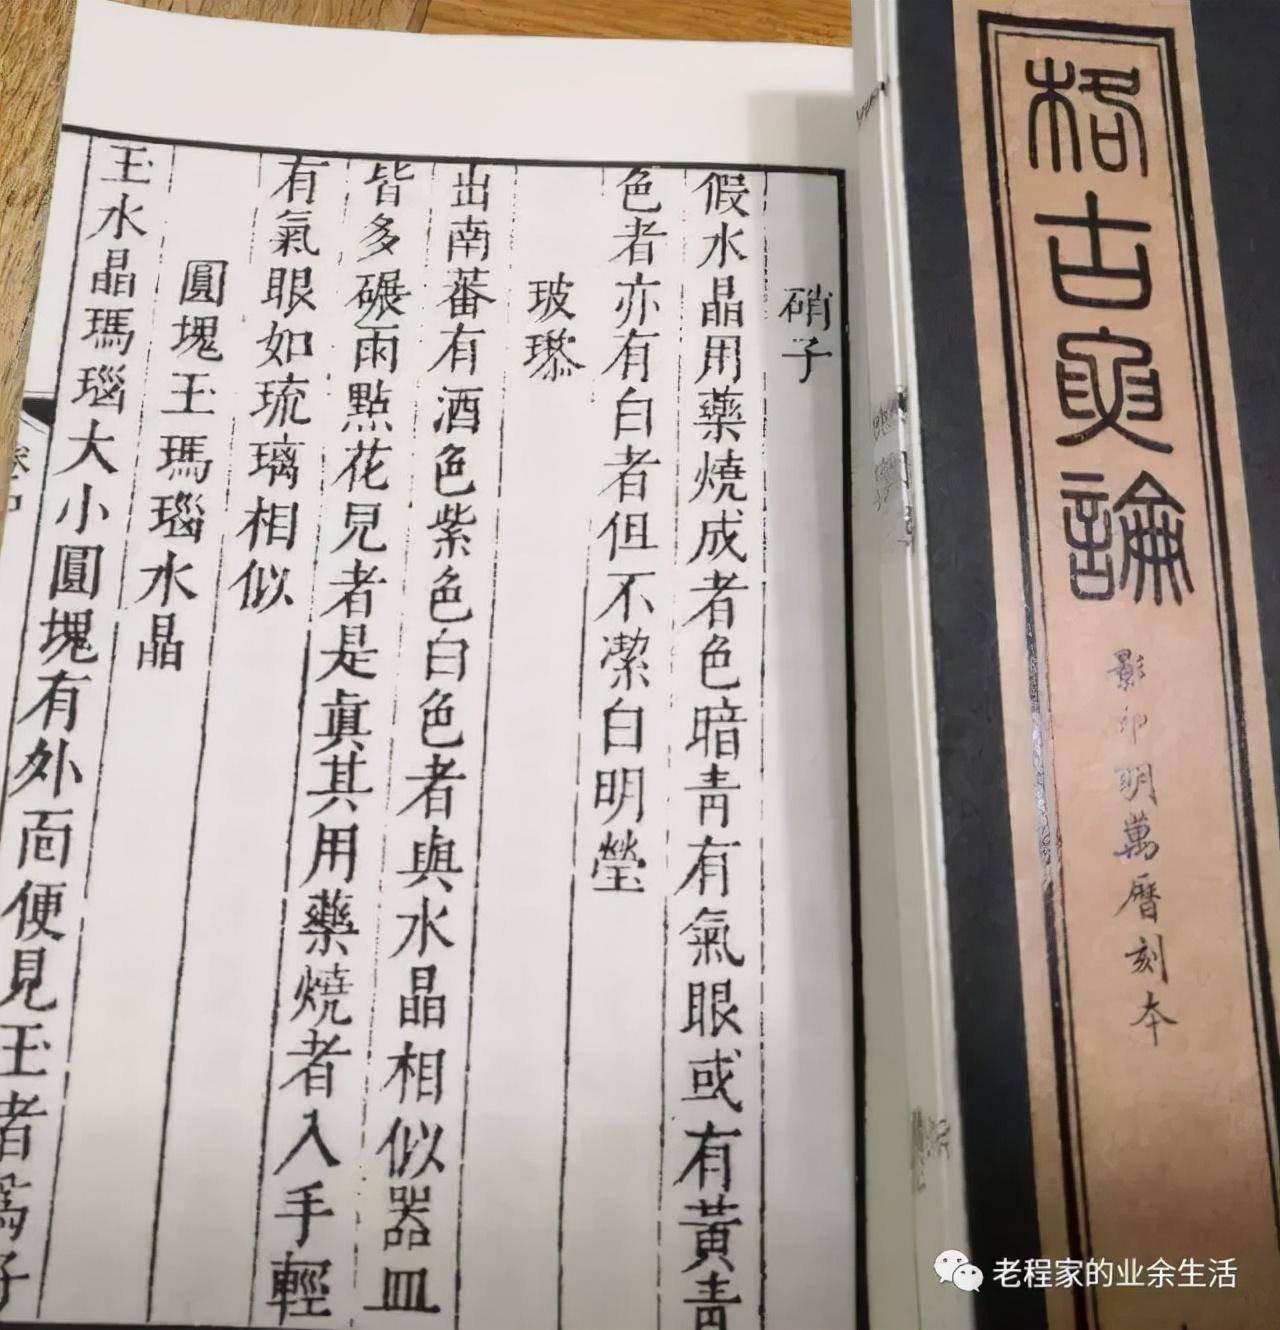 格古要論
影印明萬曆刻本
硝子
假水晶用藥燒成者色暗青有氣眼或有黃青
色者亦有白者但不潔白明瑩
玻瓈
出南蕃有酒色紫色白色者與水晶相似器皿
皆多碾雨點花見者是真其用藥燒者入手輕
有氣眼如琉璃相似
圓塊玉瑪瑙水晶
玉水晶瑪瑙大小圓塊有外面便見玉者爲子
老程家的业余生活